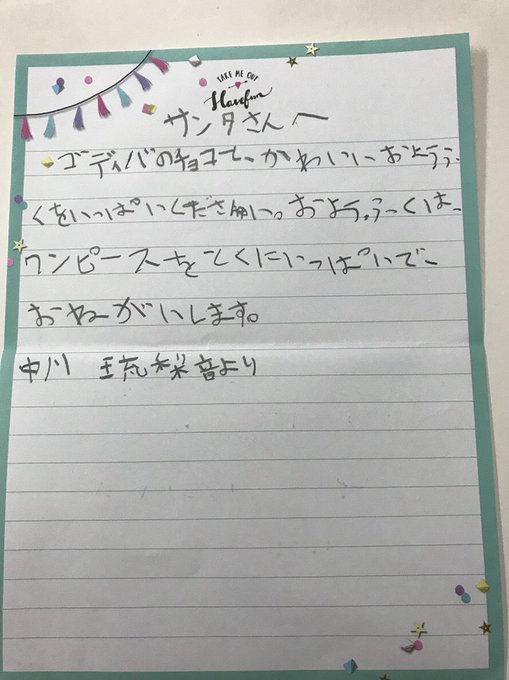 TAKE ME OUT
Have fun
サンタさんへ
ゴディバのチョコと、かわいい おようふ
くをいっぱいください。おようふくは、
ワンピースをとくにいっぱいで
おねがいします。
中川 琉梨音より